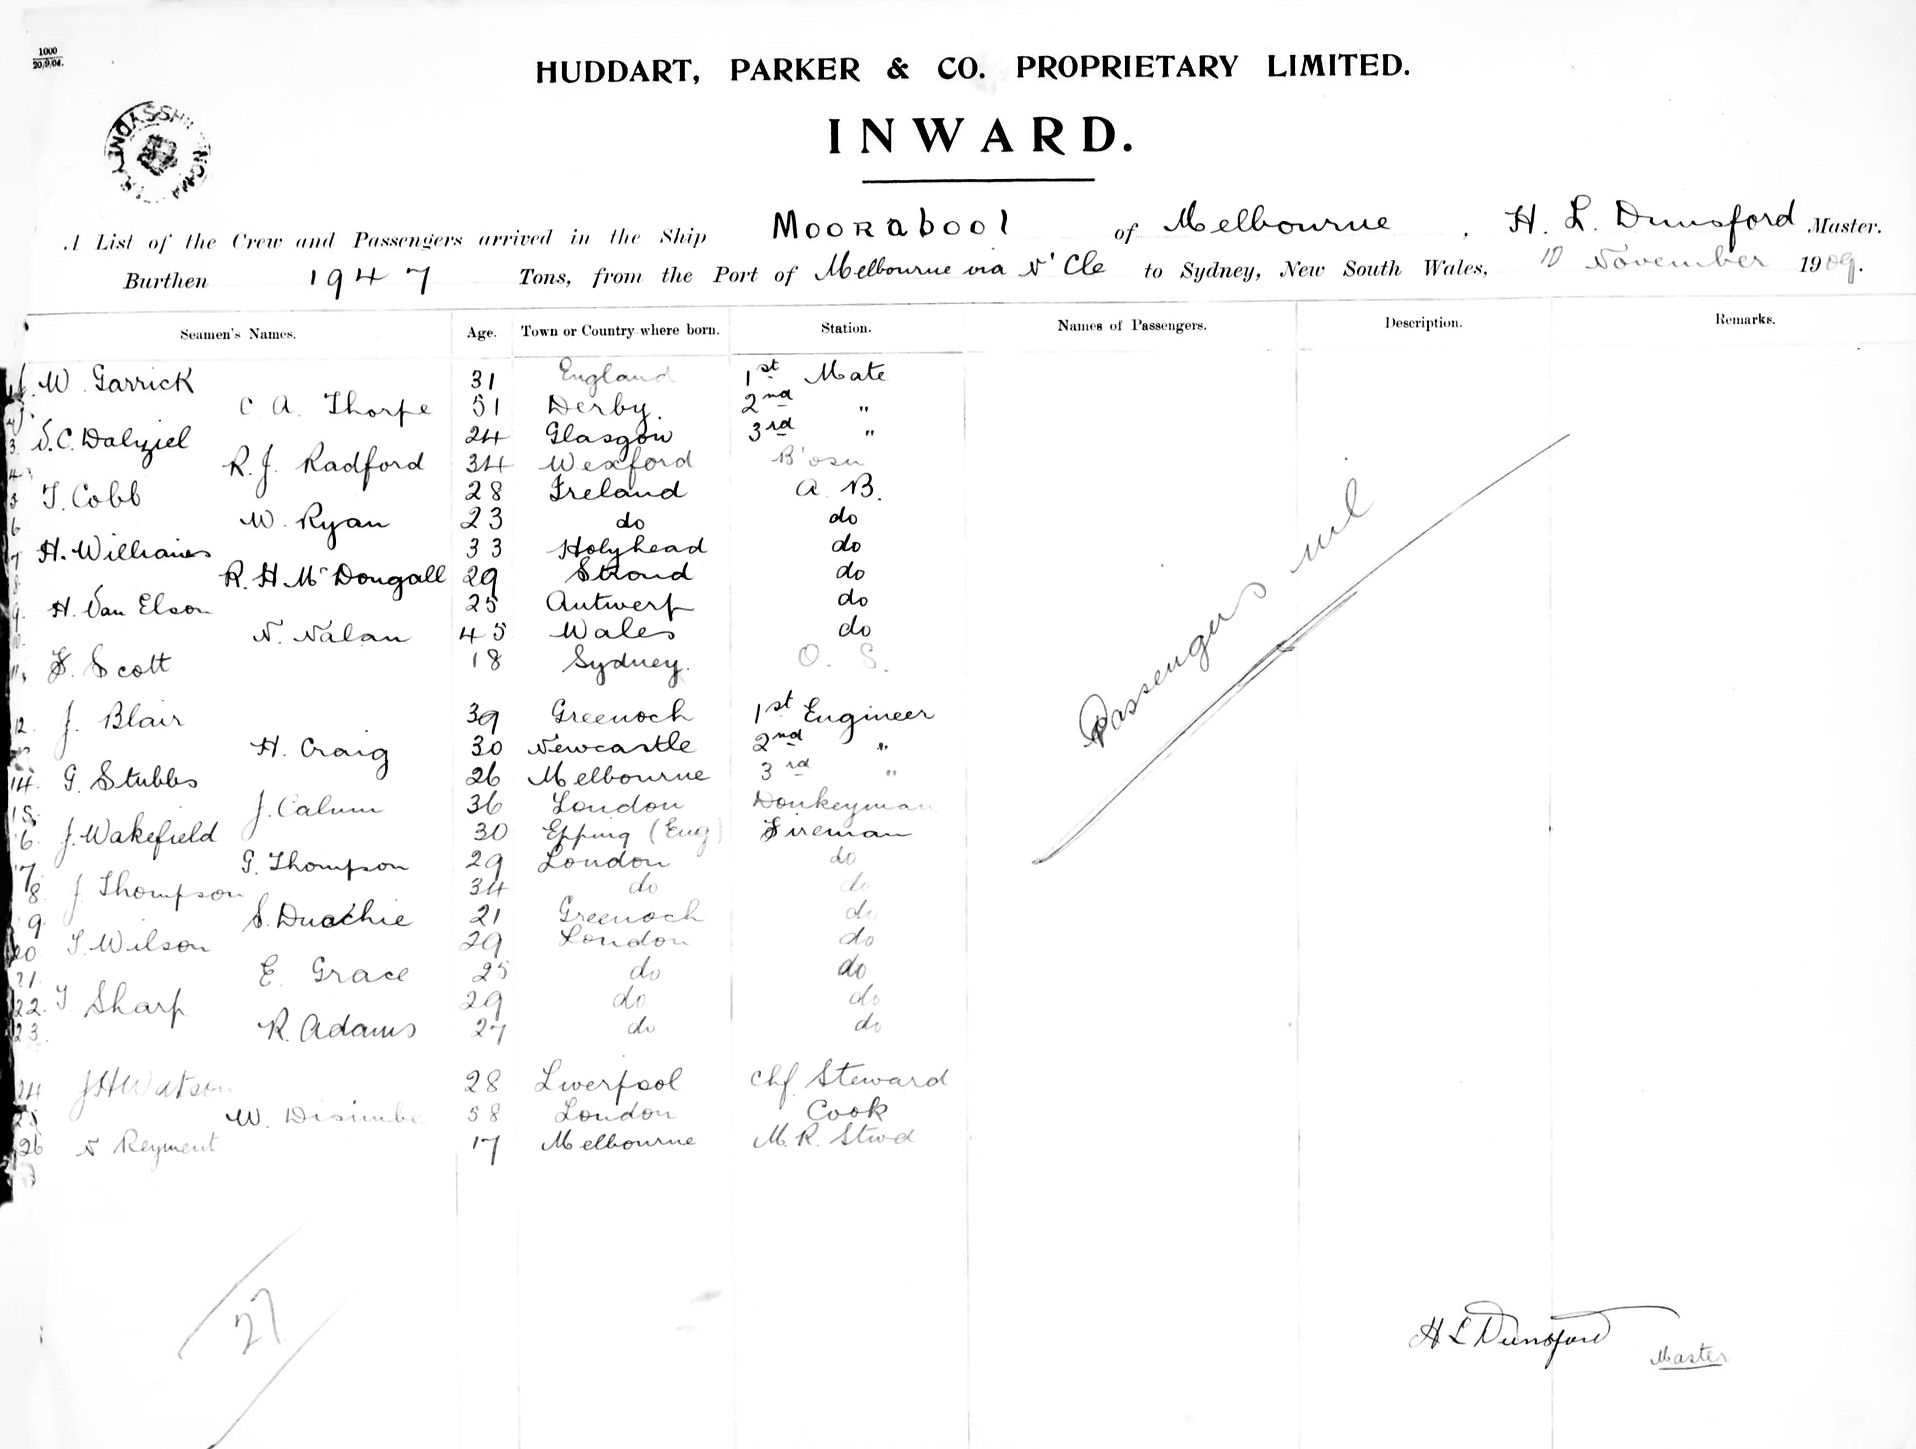 1000
20/9/04.
HUDDART, PARKER & CO. PROPRIETARY LIMITED.
INWARD.
SYDNEY
A List of the Crew and Passengers arrived in the Ship Moorabool of Melbourne, H. L. Dunsford Master.
Burthen 1947 Tons, from the Port of Melbourne via N'Cle to Sydney, New South Wales, 10 November 1909.
Seamen's Names. Age. Town or Country where born. Station. Names of Passengers. Description. Remarks.
1 W. Garrick 31 England 1st Mate
C A. Thorpe 51 Derby. 2nd "
3 S.C. Dalziel 24 Glasgow 3rd "
4 R. J. Radford 34 Wexford B'osn
5 T. Cobb 28 Ireland A. B.
6 W. Ryan 23 do do
7 H. Williams 33 Holyhead do
8 R. H McDougall 29 Stroud do
9. H. Van Elson 25 Antwerp do
10. N. Nalan 45 Wales do
11. F. Scott 18 Sydney. O. S.
12. J. Blair 39 Greenoch 1st Engineer
H. Craig 30 Newcastle 2nd "
14. G. Stubbs 26 Melbourne 3rd "
15. J. Calum 36 London Donkeyman
6 J. Wakefield 30 Epping (Eng) Fireman
7 G. Thompson 29 London do
8 J Thompson 34 do do
9. S. Duachie 21 Greenoch do
20 T. Wilson 29 London do
21 E. Grace 25 do do
22. T Sharp 29 do do
23 R. Adams 27 do do
24 J H Watson 28 Liverpool Chf Steward
25 W. 58 London Cook
26 N Reyment 17 Melbourne M. R. Stwd
Passengers nil
27
H L Dunsford
Master